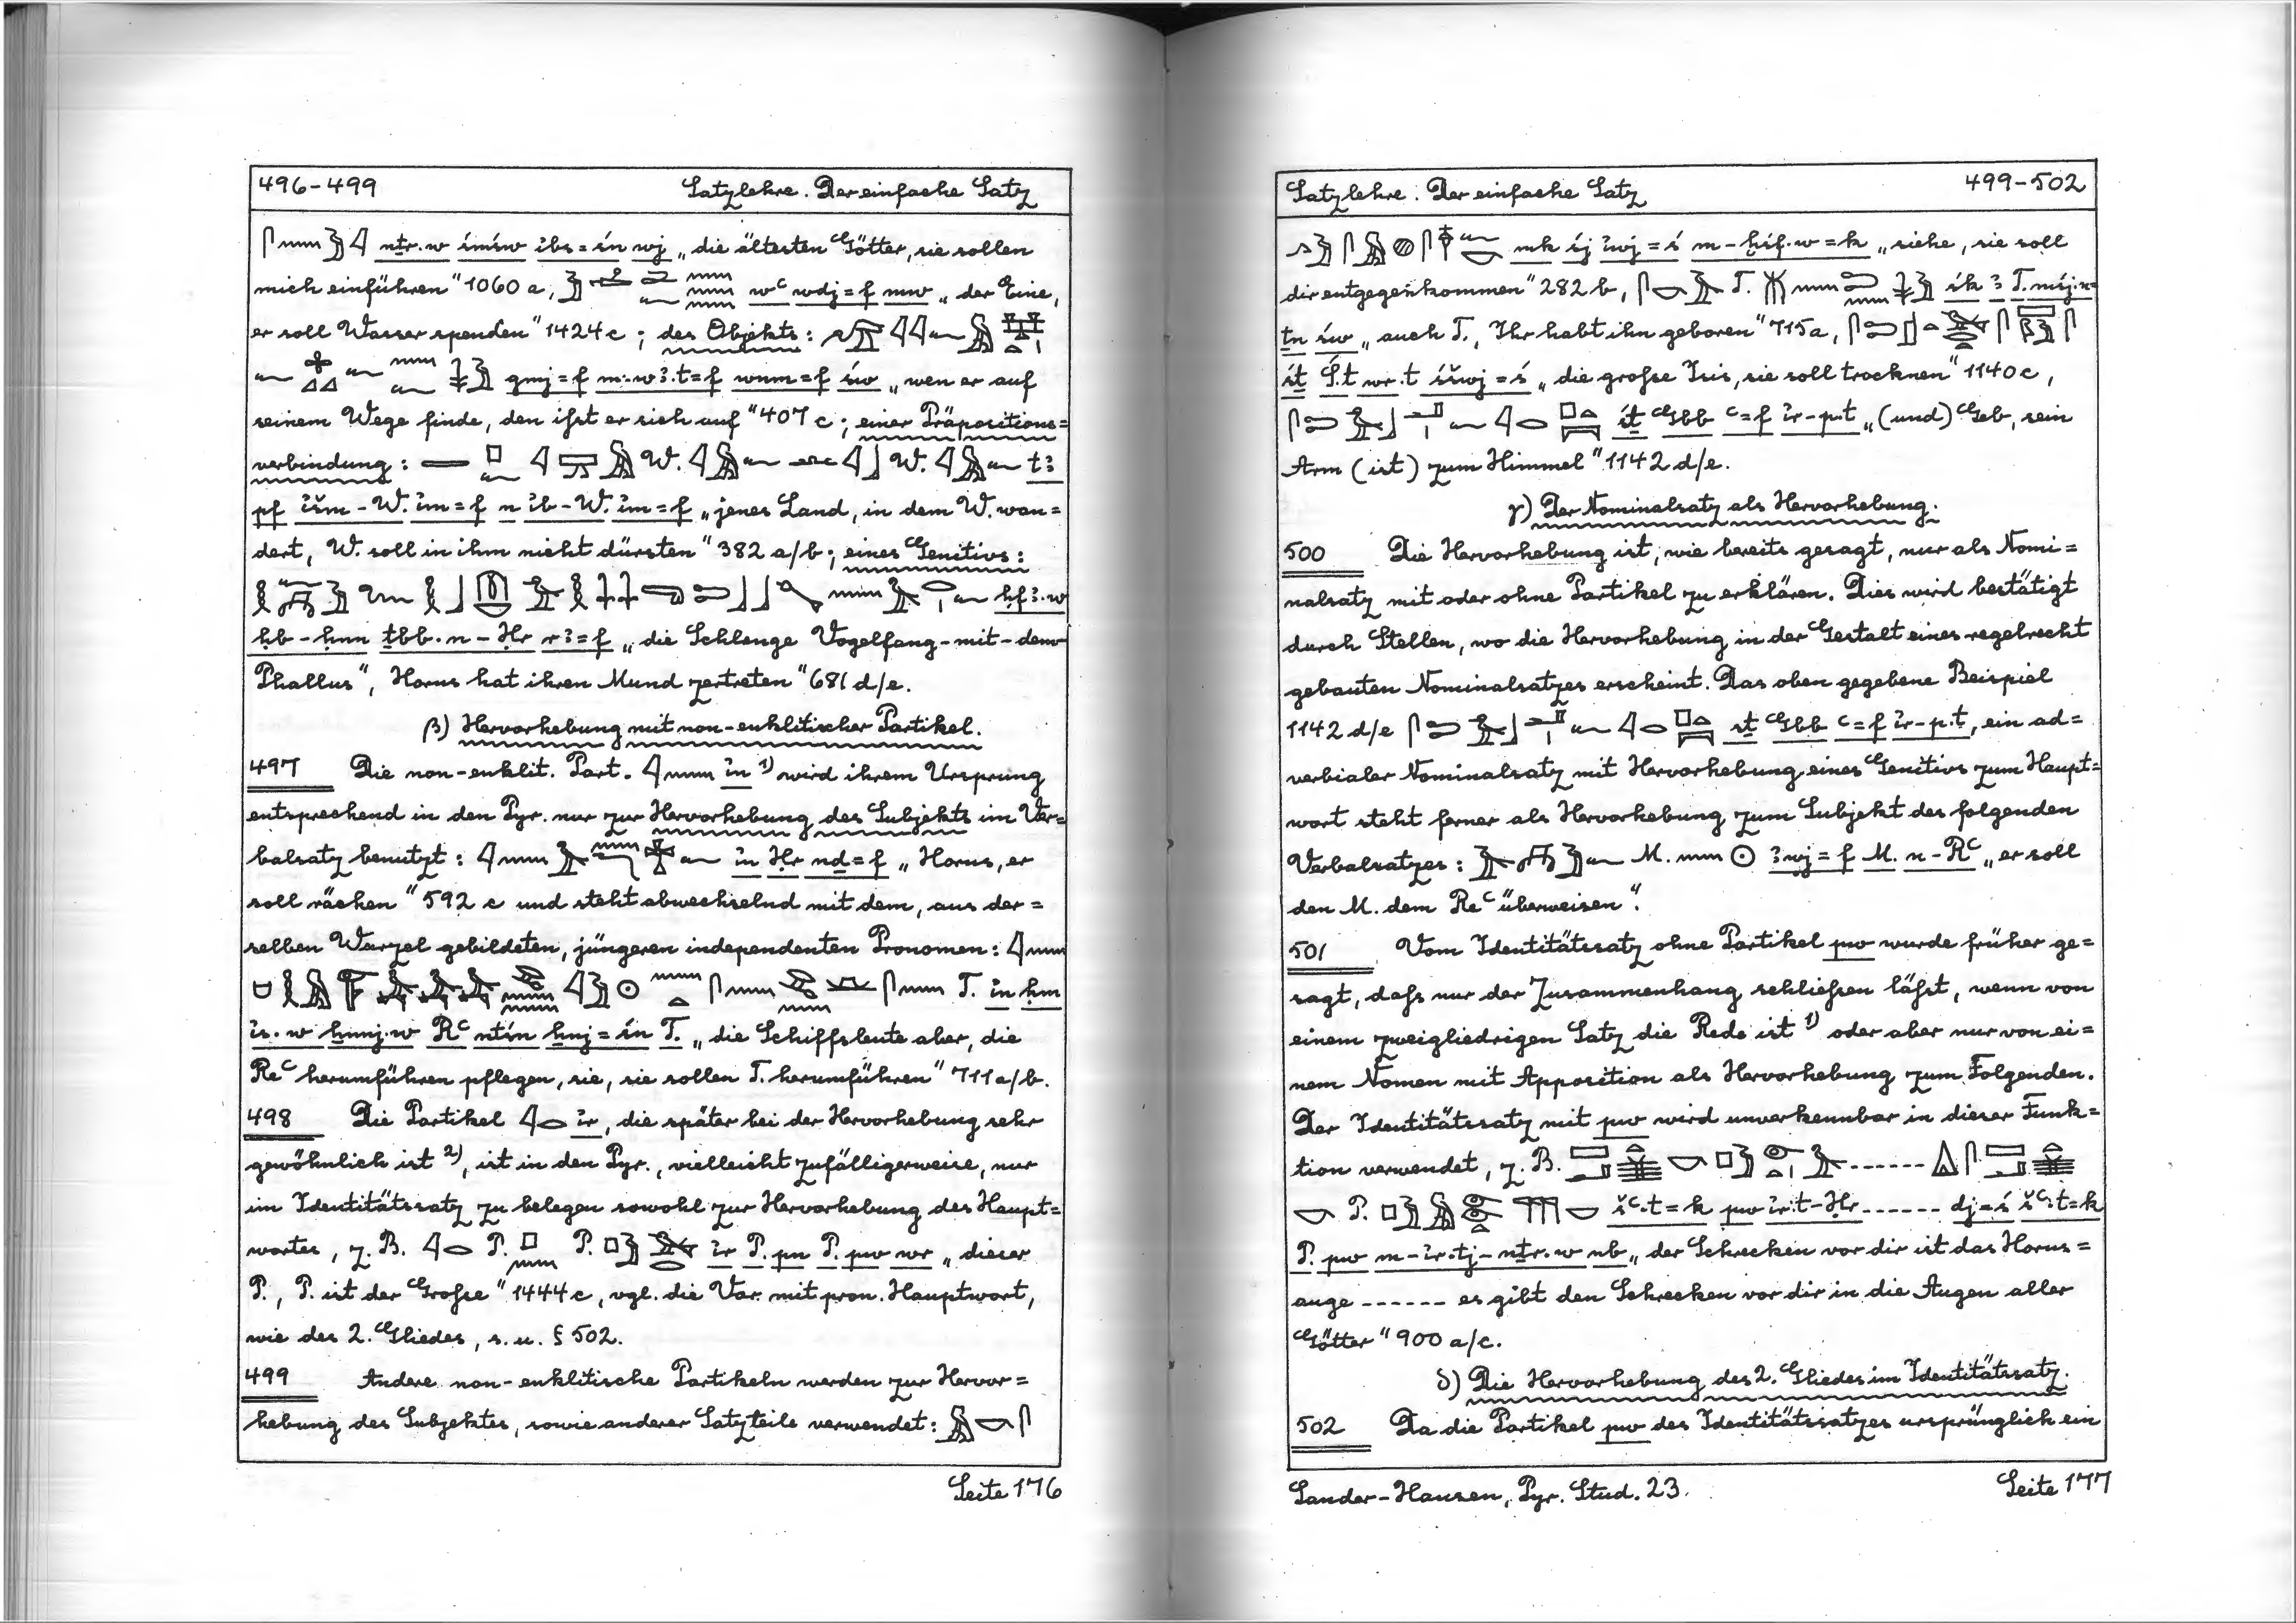 496-499 Satzlehre. Der einfache Satz
nṯr.w śmśw ỉbs=śn wj „die ältesten Götter, sie sollen
mich einführen" 1060 a, wꜥ wdj=f mw „der Eine,
er soll Wasser spenden" 1424 c; des Objekts:
gmj=f m-wꜣ.t=f wnm=f św „wen er auf
seinem Wege finde, den ißt er sich auf" 407 c; einer Präpositions=
verbindung: W. W. tꜣ
pf ỉšm-W. ỉm=f n ỉb-W. ỉm=f „jenes Land, in dem W. wan=
dert, W. soll in ihm nicht dürsten" 382 a/b; eines Genitivs:
ḥfꜣ.w
ḥb-ḥnn ṯbb.n-Ḥr rꜣ=f „die Schlange Vogelfang-mit-dem-
Phallus", Horus hat ihren Mund zertreten" 681 d/e.
β) Hervorhebung mit non-enklitischer Partikel.
497 Die non-enklit. Part. ỉn 1) wird ihrem Ursprung
entsprechend in den Pyr. nur zur Hervorhebung des Subjekts im Ver=
balsatz benutzt: ỉn Ḥr nḏ=f „Horus, er
soll rächen" 592 c und steht abwechselnd mit dem, aus der=
selben Wurzel gebildeten, jüngeren independenten Pronomen:
T. ỉn ḥm
ỉs.w ẖnnj.w Rꜥ ntśn ẖnj=śn T. „die Schiffsleute aber, die
Reꜥ herumführen pflegen, sie, sie sollen T. herumführen" 711 a/b.
498 Die Partikel ỉr, die später bei der Hervorhebung sehr
gewöhnlich ist 2), ist in den Pyr., vielleicht zufälligerweise, nur
im Identitätssatz zu belegen sowohl zur Hervorhebung des Haupt=
wortes, z. B. P. P. ỉr P. pn P. pw wr „dieser
P., P. ist der Große" 1444 c, vgl. die Var. mit pron. Hauptwort,
wie des 2. Gliedes, s. u. § 502.
499 Andere non-enklitische Partikeln werden zur Hervor=
hebung des Subjektes, sowie anderer Satzteile verwendet:
Seite 176
Satzlehre. Der einfache Satz 499-502
mk śj ỉwj=ś m-ḫśf.w=k „siehe, sie soll
dir entgegenkommen" 282 b, T. śk ꜣ T. mśj.n=
ṯn św „auch T., Ihr habt ihn geboren" 715 a,
śṯ Ś.t wr.t śšwj=ś „die große Isis, sie soll trocknen" 1140 c,
śṯ Gbb ꜥ=f ỉr-p.t „(und) Geb, sein
Arm (ist) zum Himmel" 1142 d/e.
γ) Der Nominalsatz als Hervorhebung.
500 Die Hervorhebung ist, wie bereits gesagt, nur als Nomi=
nalsatz mit oder ohne Partikel zu erklären. Dies wird bestätigt
durch Stellen, wo die Hervorhebung in der Gestalt eines regelrecht
gebauten Nominalsatzes erscheint. Das oben gegebene Beispiel
1142 d/e śṯ Gbb ꜥ=f ỉr-p.t, ein ad=
verbialer Nominalsatz mit Hervorhebung eines Genitivs zum Haupt=
wort steht ferner als Hervorhebung zum Subjekt des folgenden
Verbalsatzes: M. ꜣwj=f M. n-Rꜥ „er soll
den M. dem Reꜥ überweisen".
501 Vom Identitätssatz ohne Partikel pw wurde früher ge=
sagt, daß nur der Zusammenhang schließen läßt, wenn von
einem zweigliedrigen Satz die Rede ist 1) oder aber nur von ei=
nem Nomen mit Apposition als Hervorhebung zum Folgenden.
Der Identitätssatz mit pw wird unverkennbar in dieser Funk=
tion verwendet, z. B. -------
P. šꜥ.t=k pw ỉr.t-Ḥr ------ dj=ś šꜥ.t=k
P. pw m-ỉr.tj-nṯr.w nb „der Schrecken vor dir ist das Horus=
auge ------ es gibt den Schrecken vor dir in die Augen aller
Götter" 900 a/c.
δ) Die Hervorhebung des 2. Gliedes im Identitätssatz.
502 Da die Partikel pw des Identitätssatzes ursprünglich ein
Sander-Hansen, Pyr. Stud. 23. Seite 177